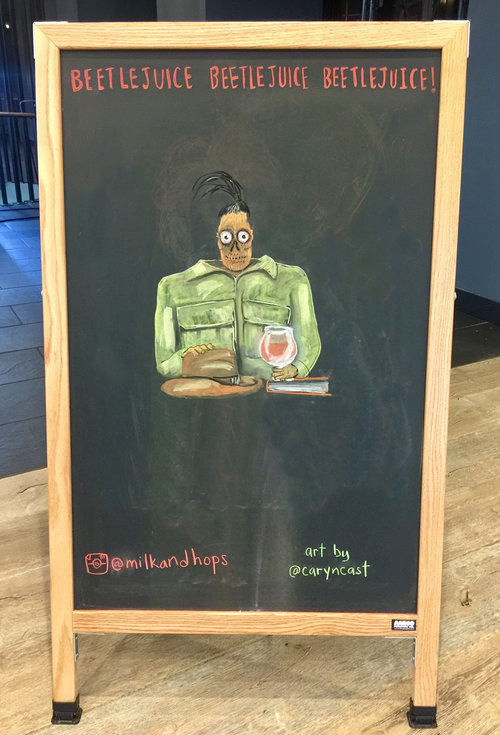 BEETLEJUICE BEETLEJUICE BEETLEJUICE!
@milkandhops
art by
@caryncast
AARCO